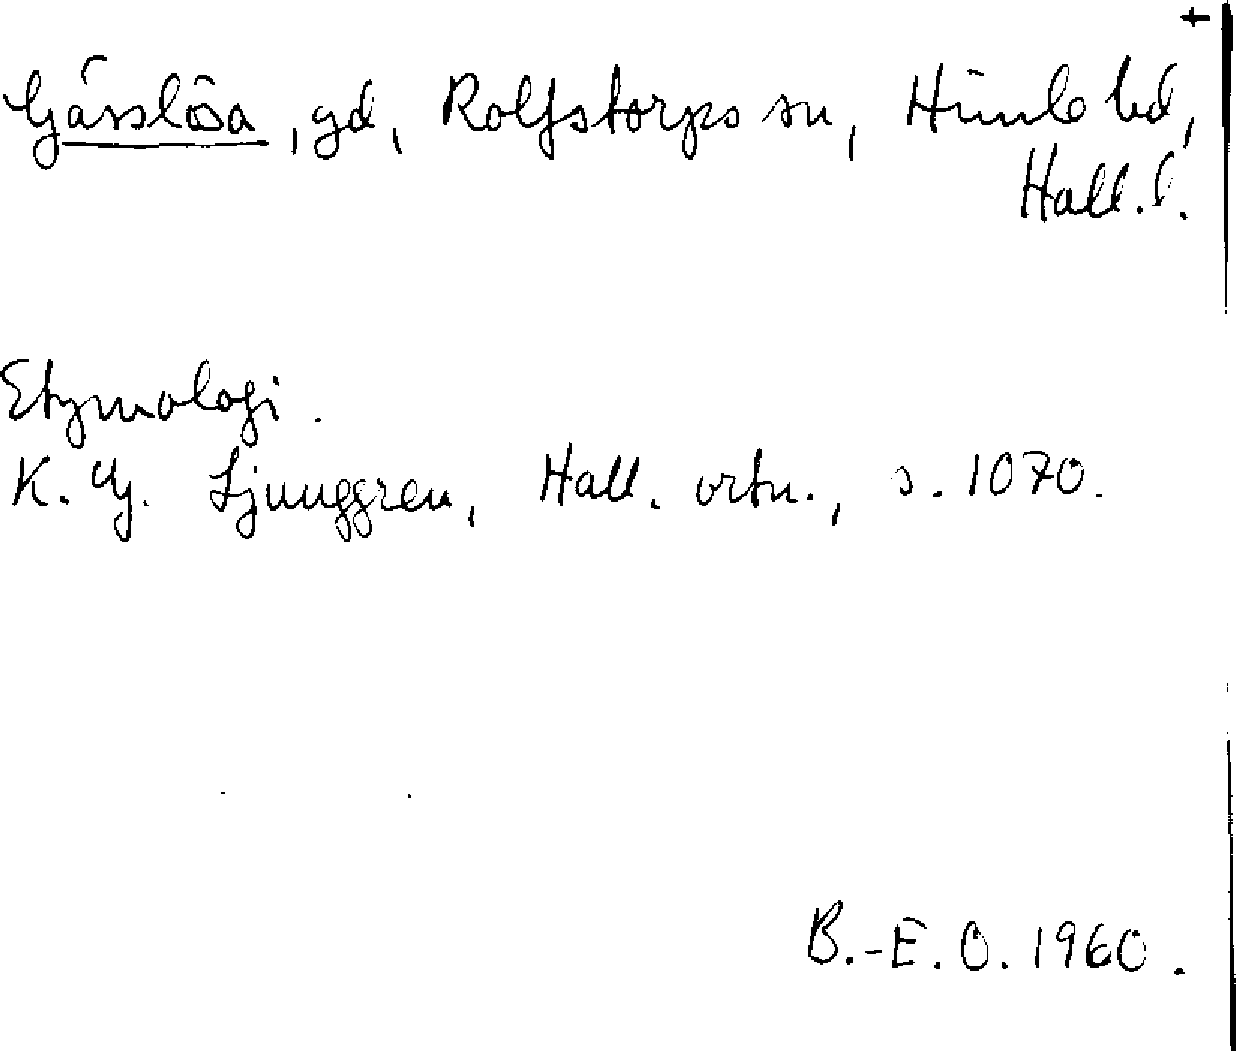 +
Gässlösa, gd, Rolfstorps sn, Himle hd,
Hall. l.
Etymologi.
K. G. Ljunggren, Hall. ortn., s. 1070.
B.-E. O. 1960.